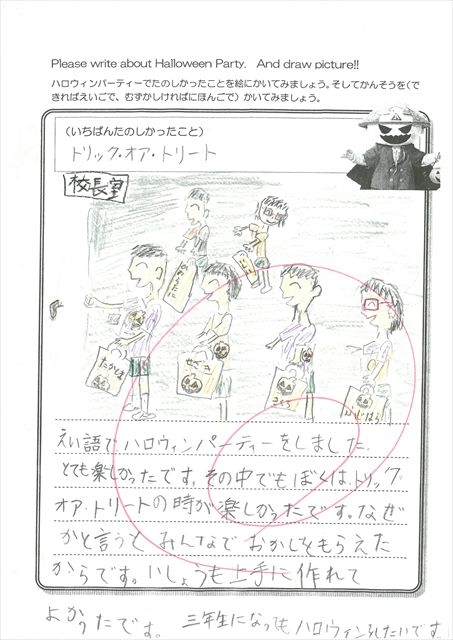 Please write about Halloween Party.　And draw picture!!
ハロウィンパーティーでたのしかったことを絵にかいてみましょう。そしてかんそうを(で
きればえいごで、むずかしければにほんごで）かいてみましょう。
（いちばんたのしかったこと）
トリック・オア・トリート
校長室
えい語でハロウィンパーティーをしました。
とても楽しかったです。その中でもぼくは、トリック
オア、トリートの時が楽しかったです。なぜ
かと言うと みんなで おかしをもらえた
からです。いしょうも上手に作れて
よかったです。 三年生になってもハロウィンをしたいです。